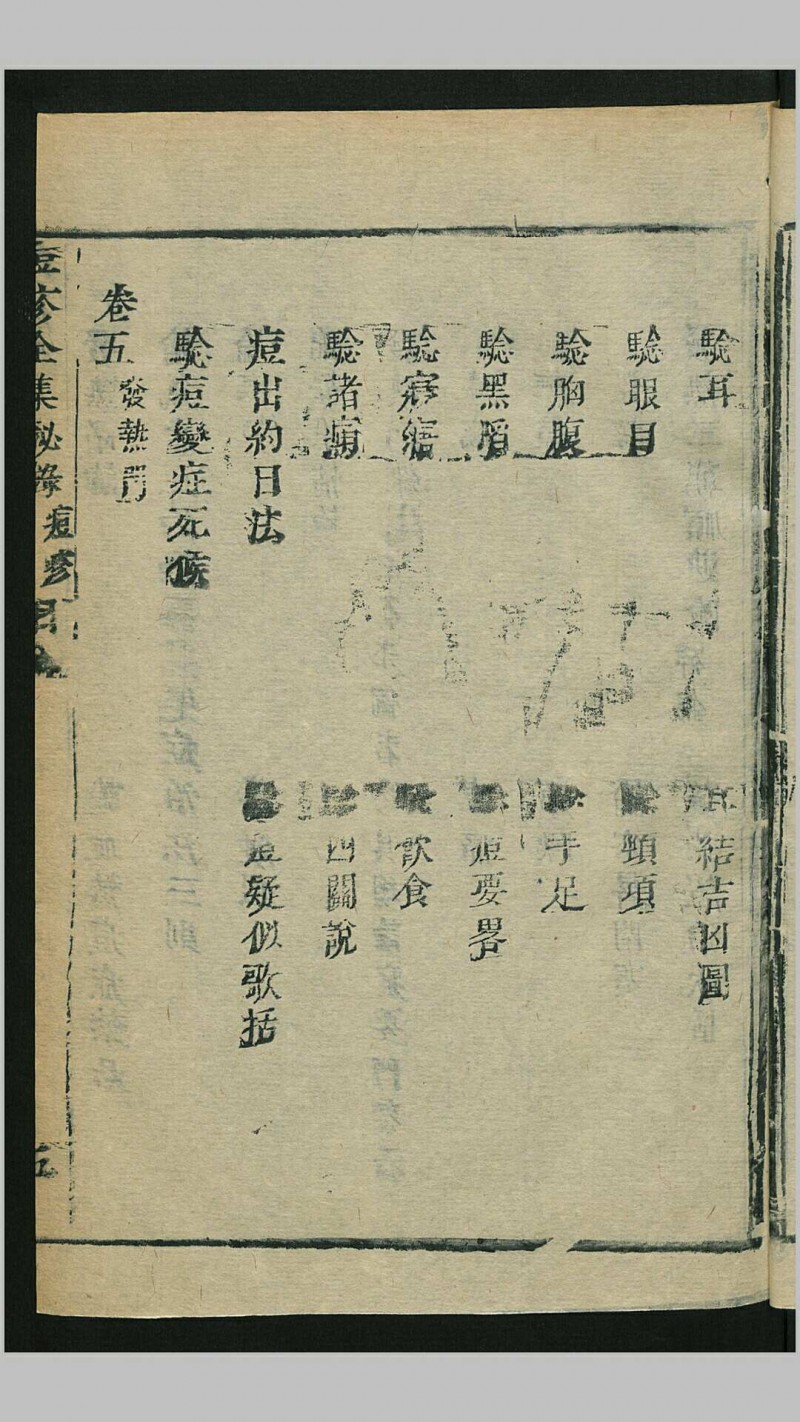 驗耳 耳結吉凶圖
驗眼目 頸項
驗胸腹 手足
驗黑 痘要畧
驗寤寐 飲食
驗諸 四關說
痘出約日法 痘疑似歌括
驗痘變症死候
卷五 發熱門
痘疹全集秘錄 痘疹目 五